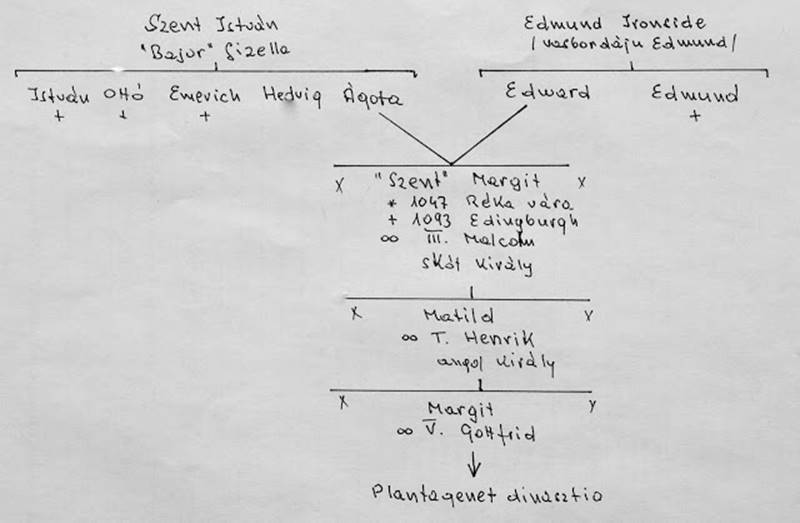 Szent István
"Bajor" Gizella
Edmund Ironside
/vasbordáju Edmund/
István OHó Emerich Hedvig Ágota
+ + +
Edward Edmund
+
x "Szent" Margit x
* 1047 Réka vára
+ 1093 Edingburgh
∞ III. Malcolm
skót király
x Matild y
∞ I. Henrik
angol király
x Margit y
∞ V. Gottfrid
Plantagenet dinasztio